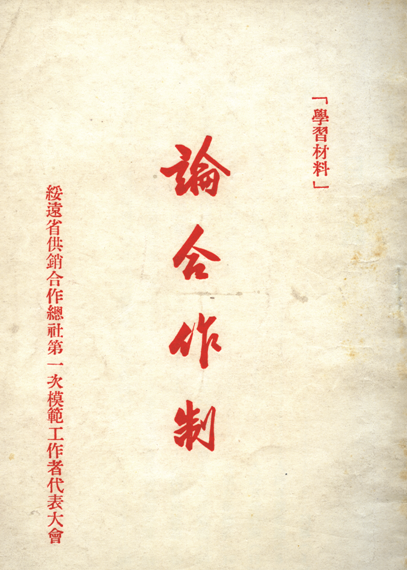 「學習材料」
論合作制
綏遠省供銷合作總社第一次模範工作者代表大會